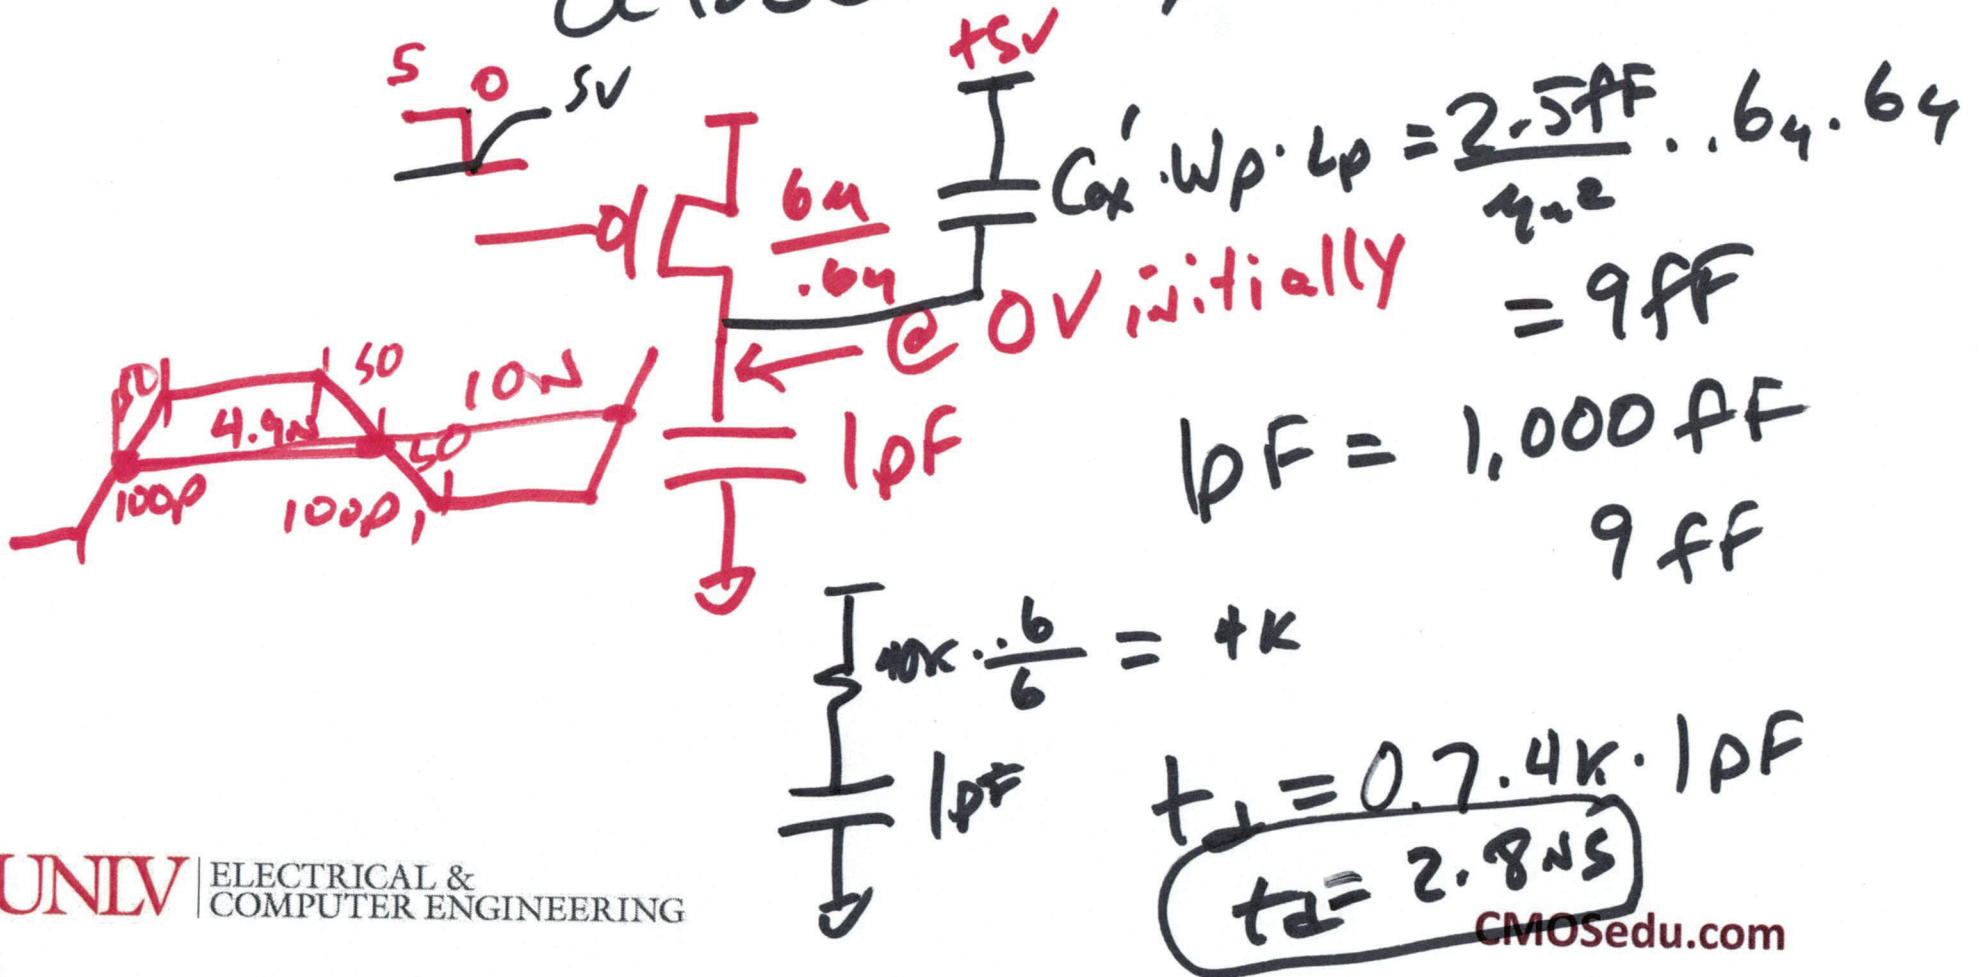 +5V
5 0 5V
6u
.6u
C'ox · Wp · Lp = 2.5fF
um²
· .6u · 6u
= 9fF
@ 0V initially
50 10N
4.9N
50
100p
100p
1pF
1pF = 1,000 fF
9 fF
40K · .6
6
= 4K
1pF
td = 0.7 · 4K · 1pF
td = 2.8NS
UNLV ELECTRICAL &
COMPUTER ENGINEERING
CMOSedu.com